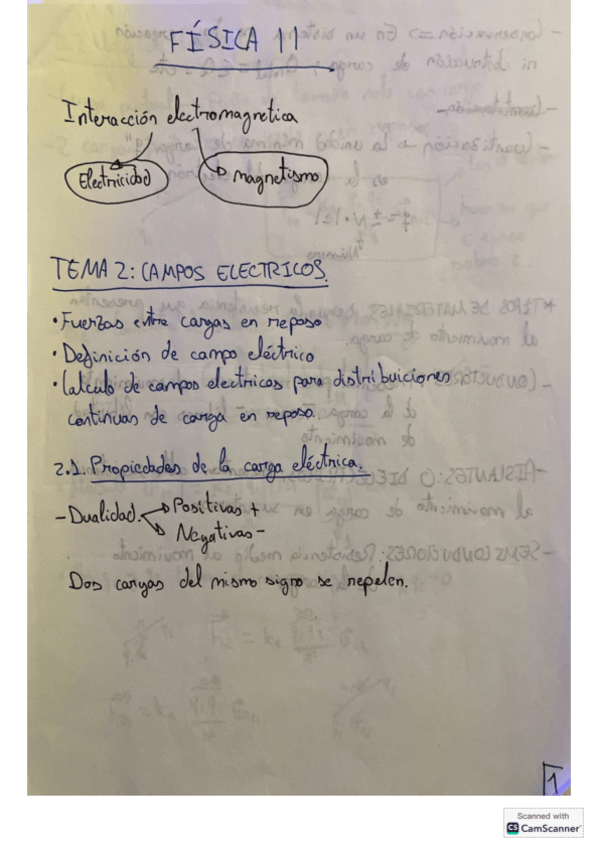 FÍSICA II
Interacción electromagnetica
Electricidad
magnetismo
TEMA 2: CAMPOS ELECTRICOS.
• Fuerzas entre cargas en reposo
• Definición de campo eléctrico
• Calculo de campos electricos para distribuiciones
continuas de carga en reposo.
2.1. Propiedades de la carga eléctrica.
- Dualidad. Positivas +
Negativas -
Dos cargas del mismo signo se repelen.
1
Scanned with
CS CamScanner